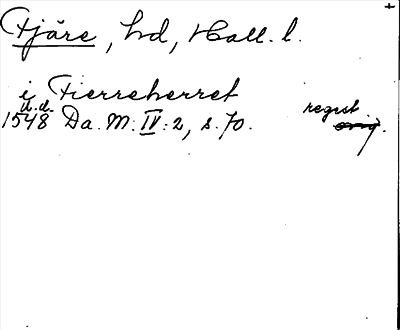 Fjäre, hd, Hall. l.
i Fierreherret
u.d.
1548 Da. M: IV: 2, s. 70. regist
orig.